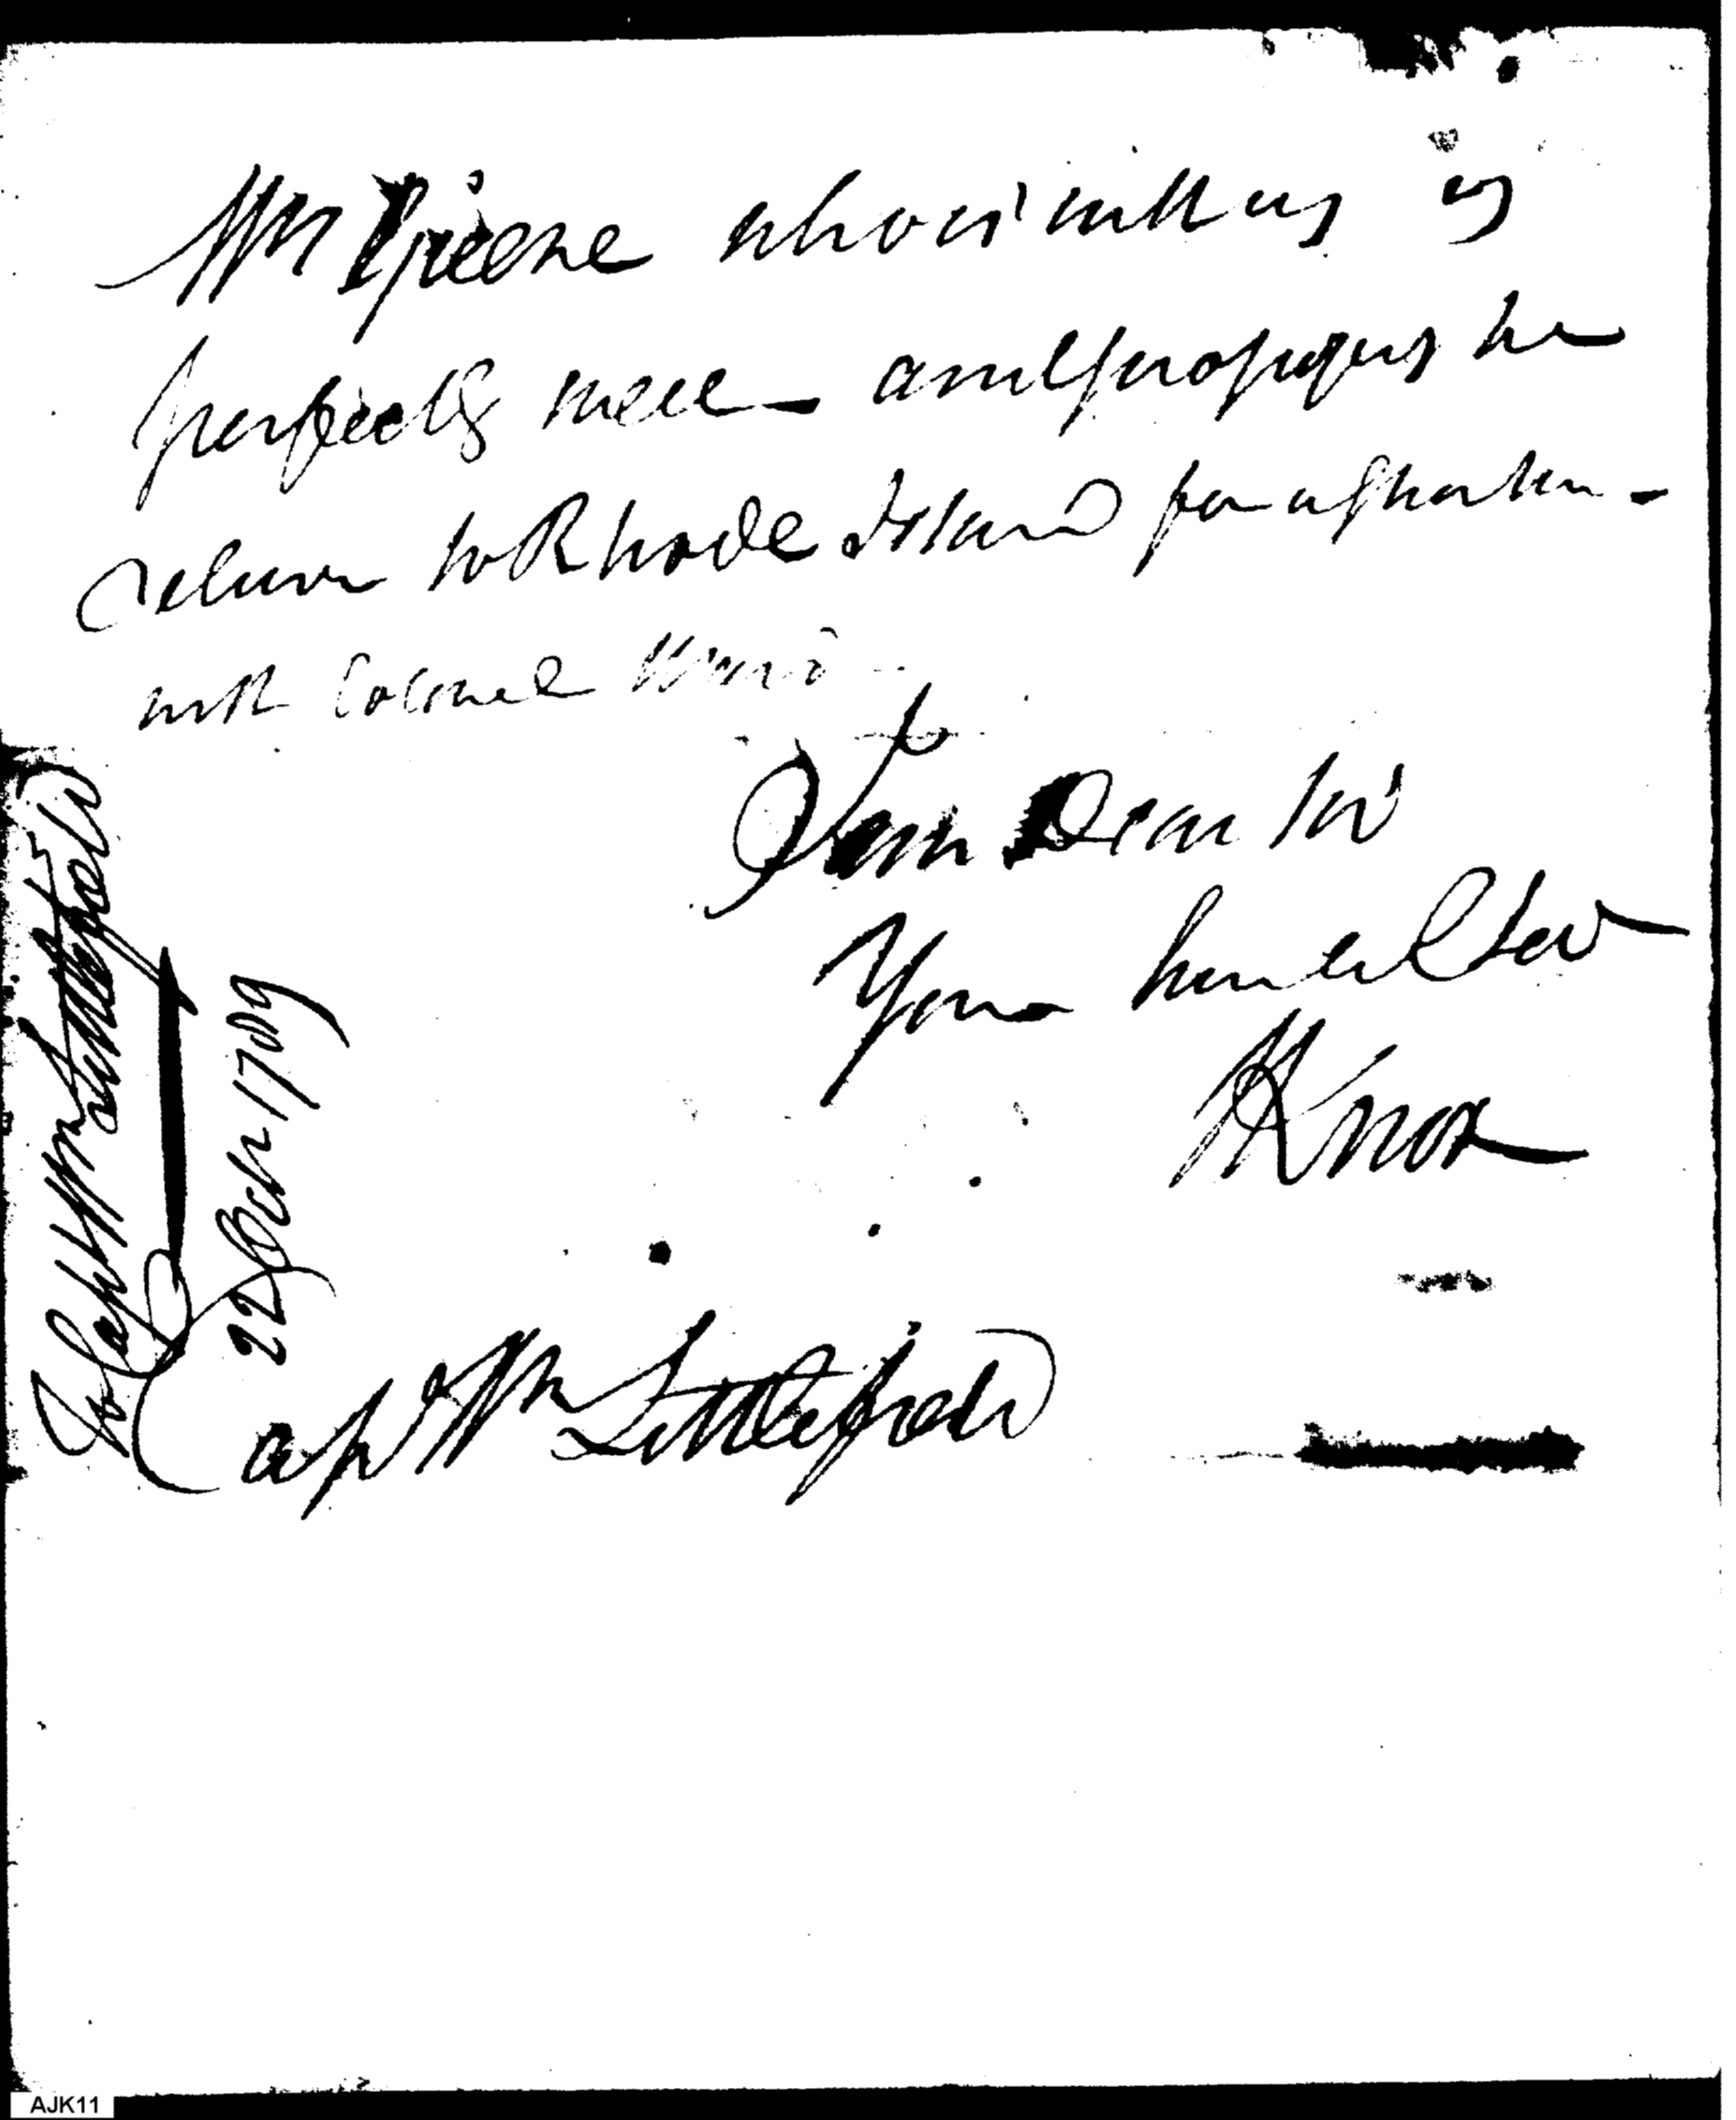 Mrs Greene who is with us is
perfectly well — and proposes to
return to Rhode Island for a short time -
with Colonel
I am Dear Sir
Your humble Ser
HKnox
Cap Wm Littlefield
To Cap Wm Littlefield
22 Octr 1789
AJK11